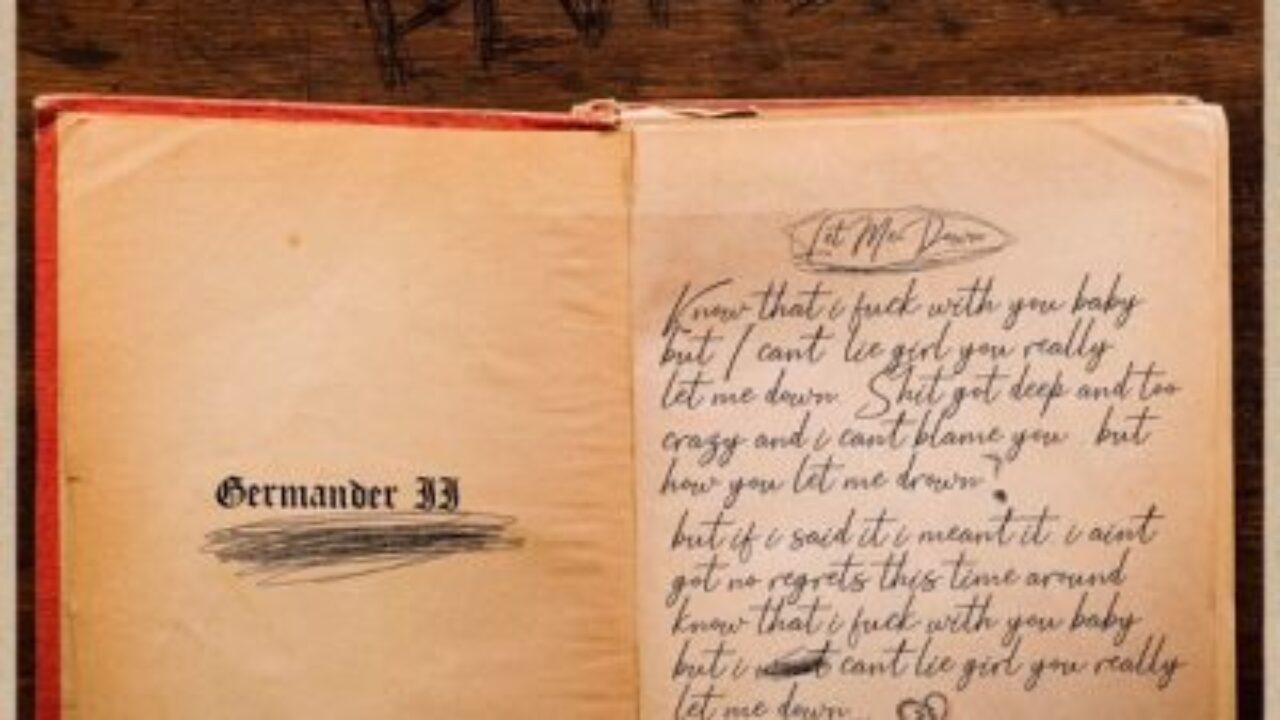 Germander II
Let Me Down
Know that i fuck with you baby
but I cant lie girl you really
let me down. Shit got deep and too
crazy and i cant blame you but
how you let me drown?
but if i said it i meant it i aint
got no regrets this time around
know that i fuck with you baby
but i cant lie girl you really
let me down...